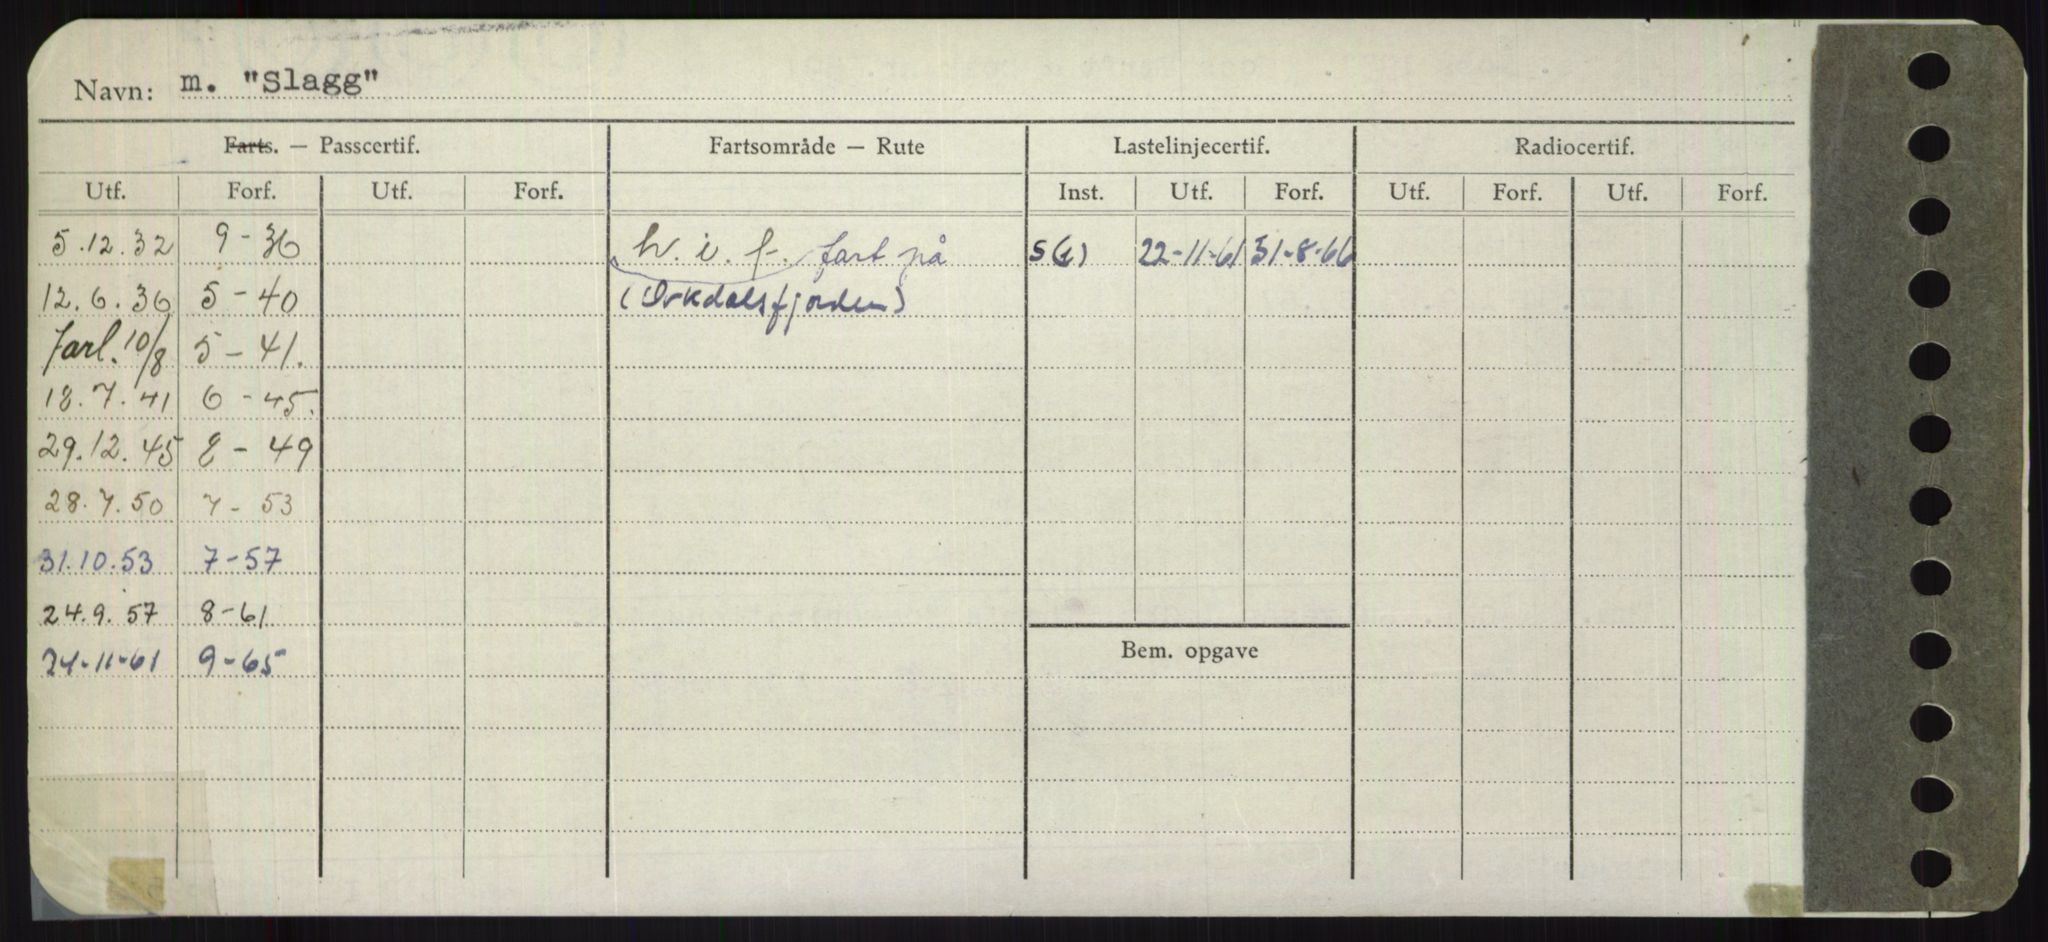 Navn: m. "Slagg"
Farts. — Passcertif. Fartsområde — Rute Lastelinjecertif. Radiocertif.
Utf. Forf. Utf. Forf. Inst. Utf. Forf. Utf. Forf. Utf. Forf.
5.12.32 9-36 h. i. f. fart på S(1) 22-11-61 31-8-66
12.6.36 5-40 (Orkdalsfjorden)
forl. 10/8 5-41.
18.7.41 6-45.
29.12.45 8-49
28.7.50 7-53
31.10.53 7-57
24.9.57 8-61
24-11-61 9-65
Bem. opgave